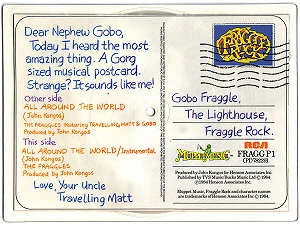 Dear Nephew Gobo,
Today I heard the most
amazing thing. A Gorg
sized musical postcard.
Strange? It sounds like me!
Other side
ALL AROUND THE WORLD
(John Kongos)
THE FRAGGLES featuring TRAVELLING MATT & GOBO
Produced by John Kongos
This side
ALL AROUND THE WORLD/Instrumental
(John Kongos)
THE FRAGGLES
Produced by John Kongos
Love, Your Uncle
Travelling Matt
FRAGGLE
ROCK
Gobo Fraggle,
The Lighthouse,
Fraggle Rock.
MUPPET MUSIC
RCA
FRAGG P1
Produced by John Kongos for Henson Associates Inc.
Published by TVS Music/Bucks Music Ltd © 1984
℗ 1984 Henson Associates Inc.
Muppet Music, Fraggle Rock and character names
are trademarks of Henson Associates Inc. © 1984.